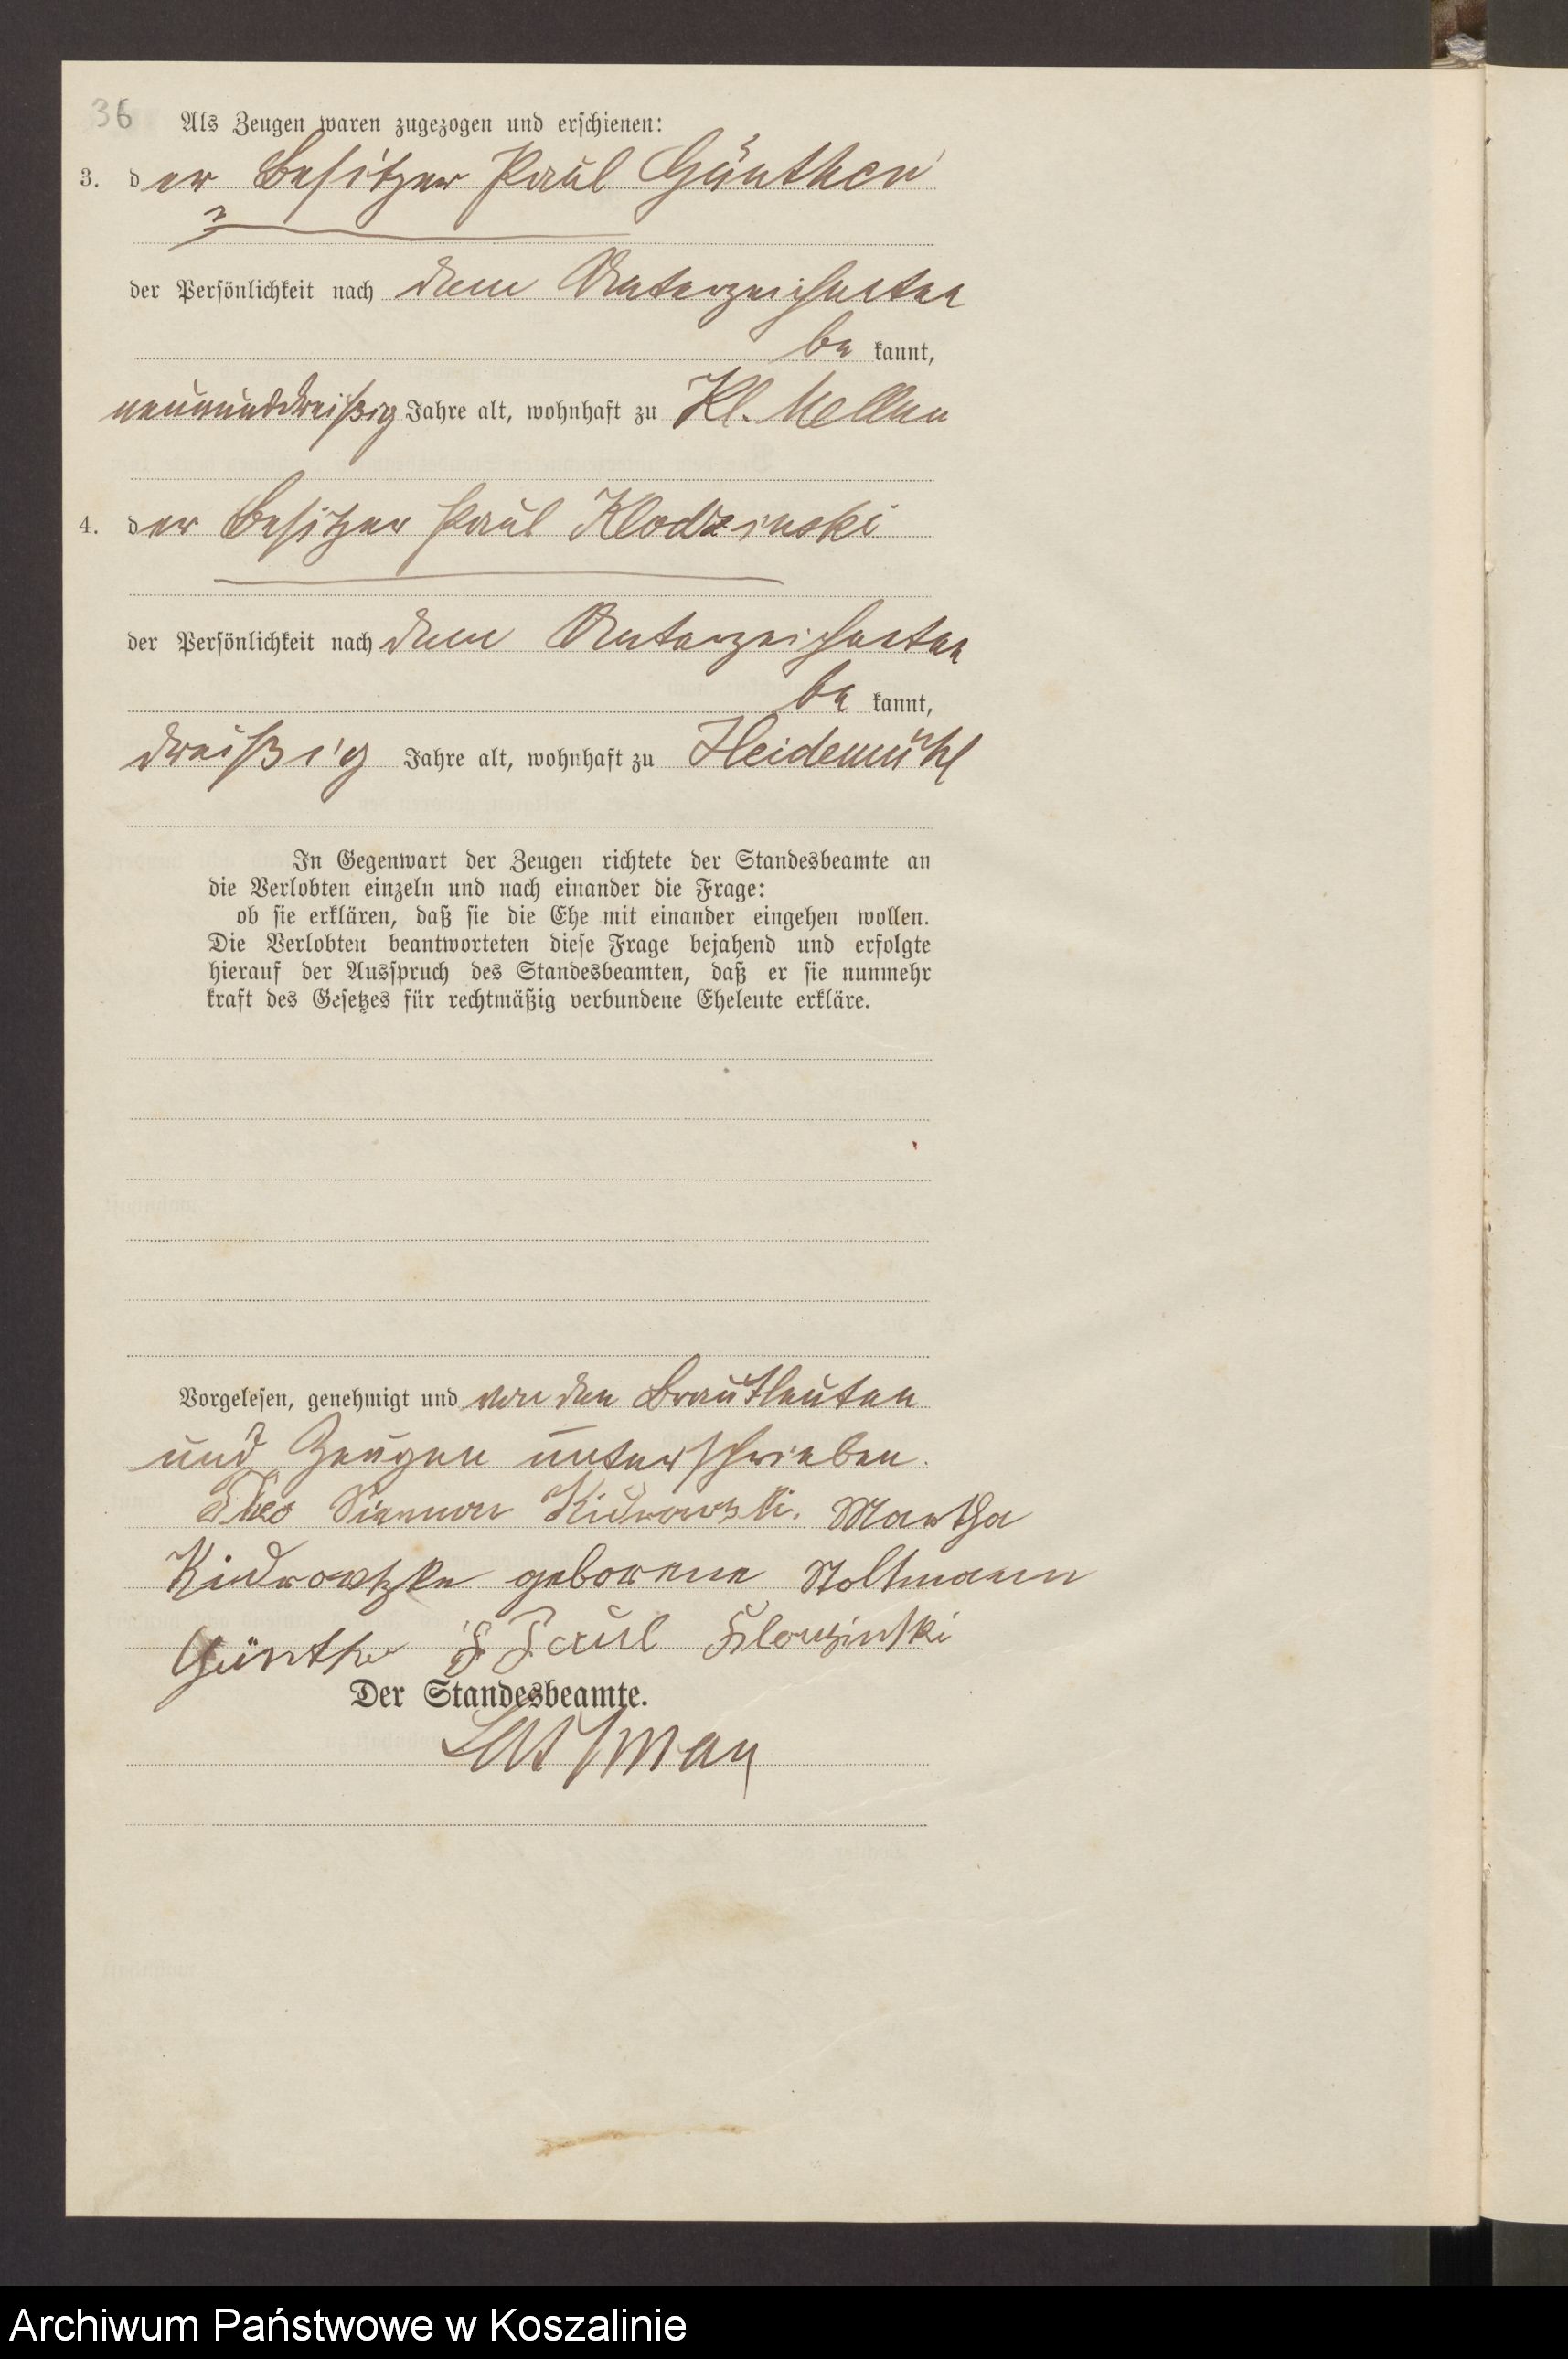 36
Als Zeugen waren zugezogen und erschienen:
3. der Besitzer Paul Günther
der Persönlichkeit nach dem Unterzeichneten
be kannt,
neununddreißig Jahre alt, wohnhaft zu Kl. Mellen
4. der Besitzer Paul Klodzinski
der Persönlichkeit nach dem Unterzeichneten
be kannt,
dreißig Jahre alt, wohnhaft zu Heidemühl
In Gegenwart der Zeugen richtete der Standesbeamte an
die Verlobten einzeln und nach einander die Frage:
ob sie erklären, daß sie die Ehe mit einander eingehen wollen.
Die Verlobten beantworteten diese Frage bejahend und erfolgte
hierauf der Ausspruch des Standesbeamten, daß er sie nunmehr
kraft des Gesetzes für rechtmäßig verbundene Eheleute erkläre.
Vorgelesen, genehmigt und von den Brautleuten
und Zeugen unterschrieben.
Theo Martha
geborene Stoltmann
Günther Paul
Der Standesbeamte.
Archiwum Państwowe w Koszalinie